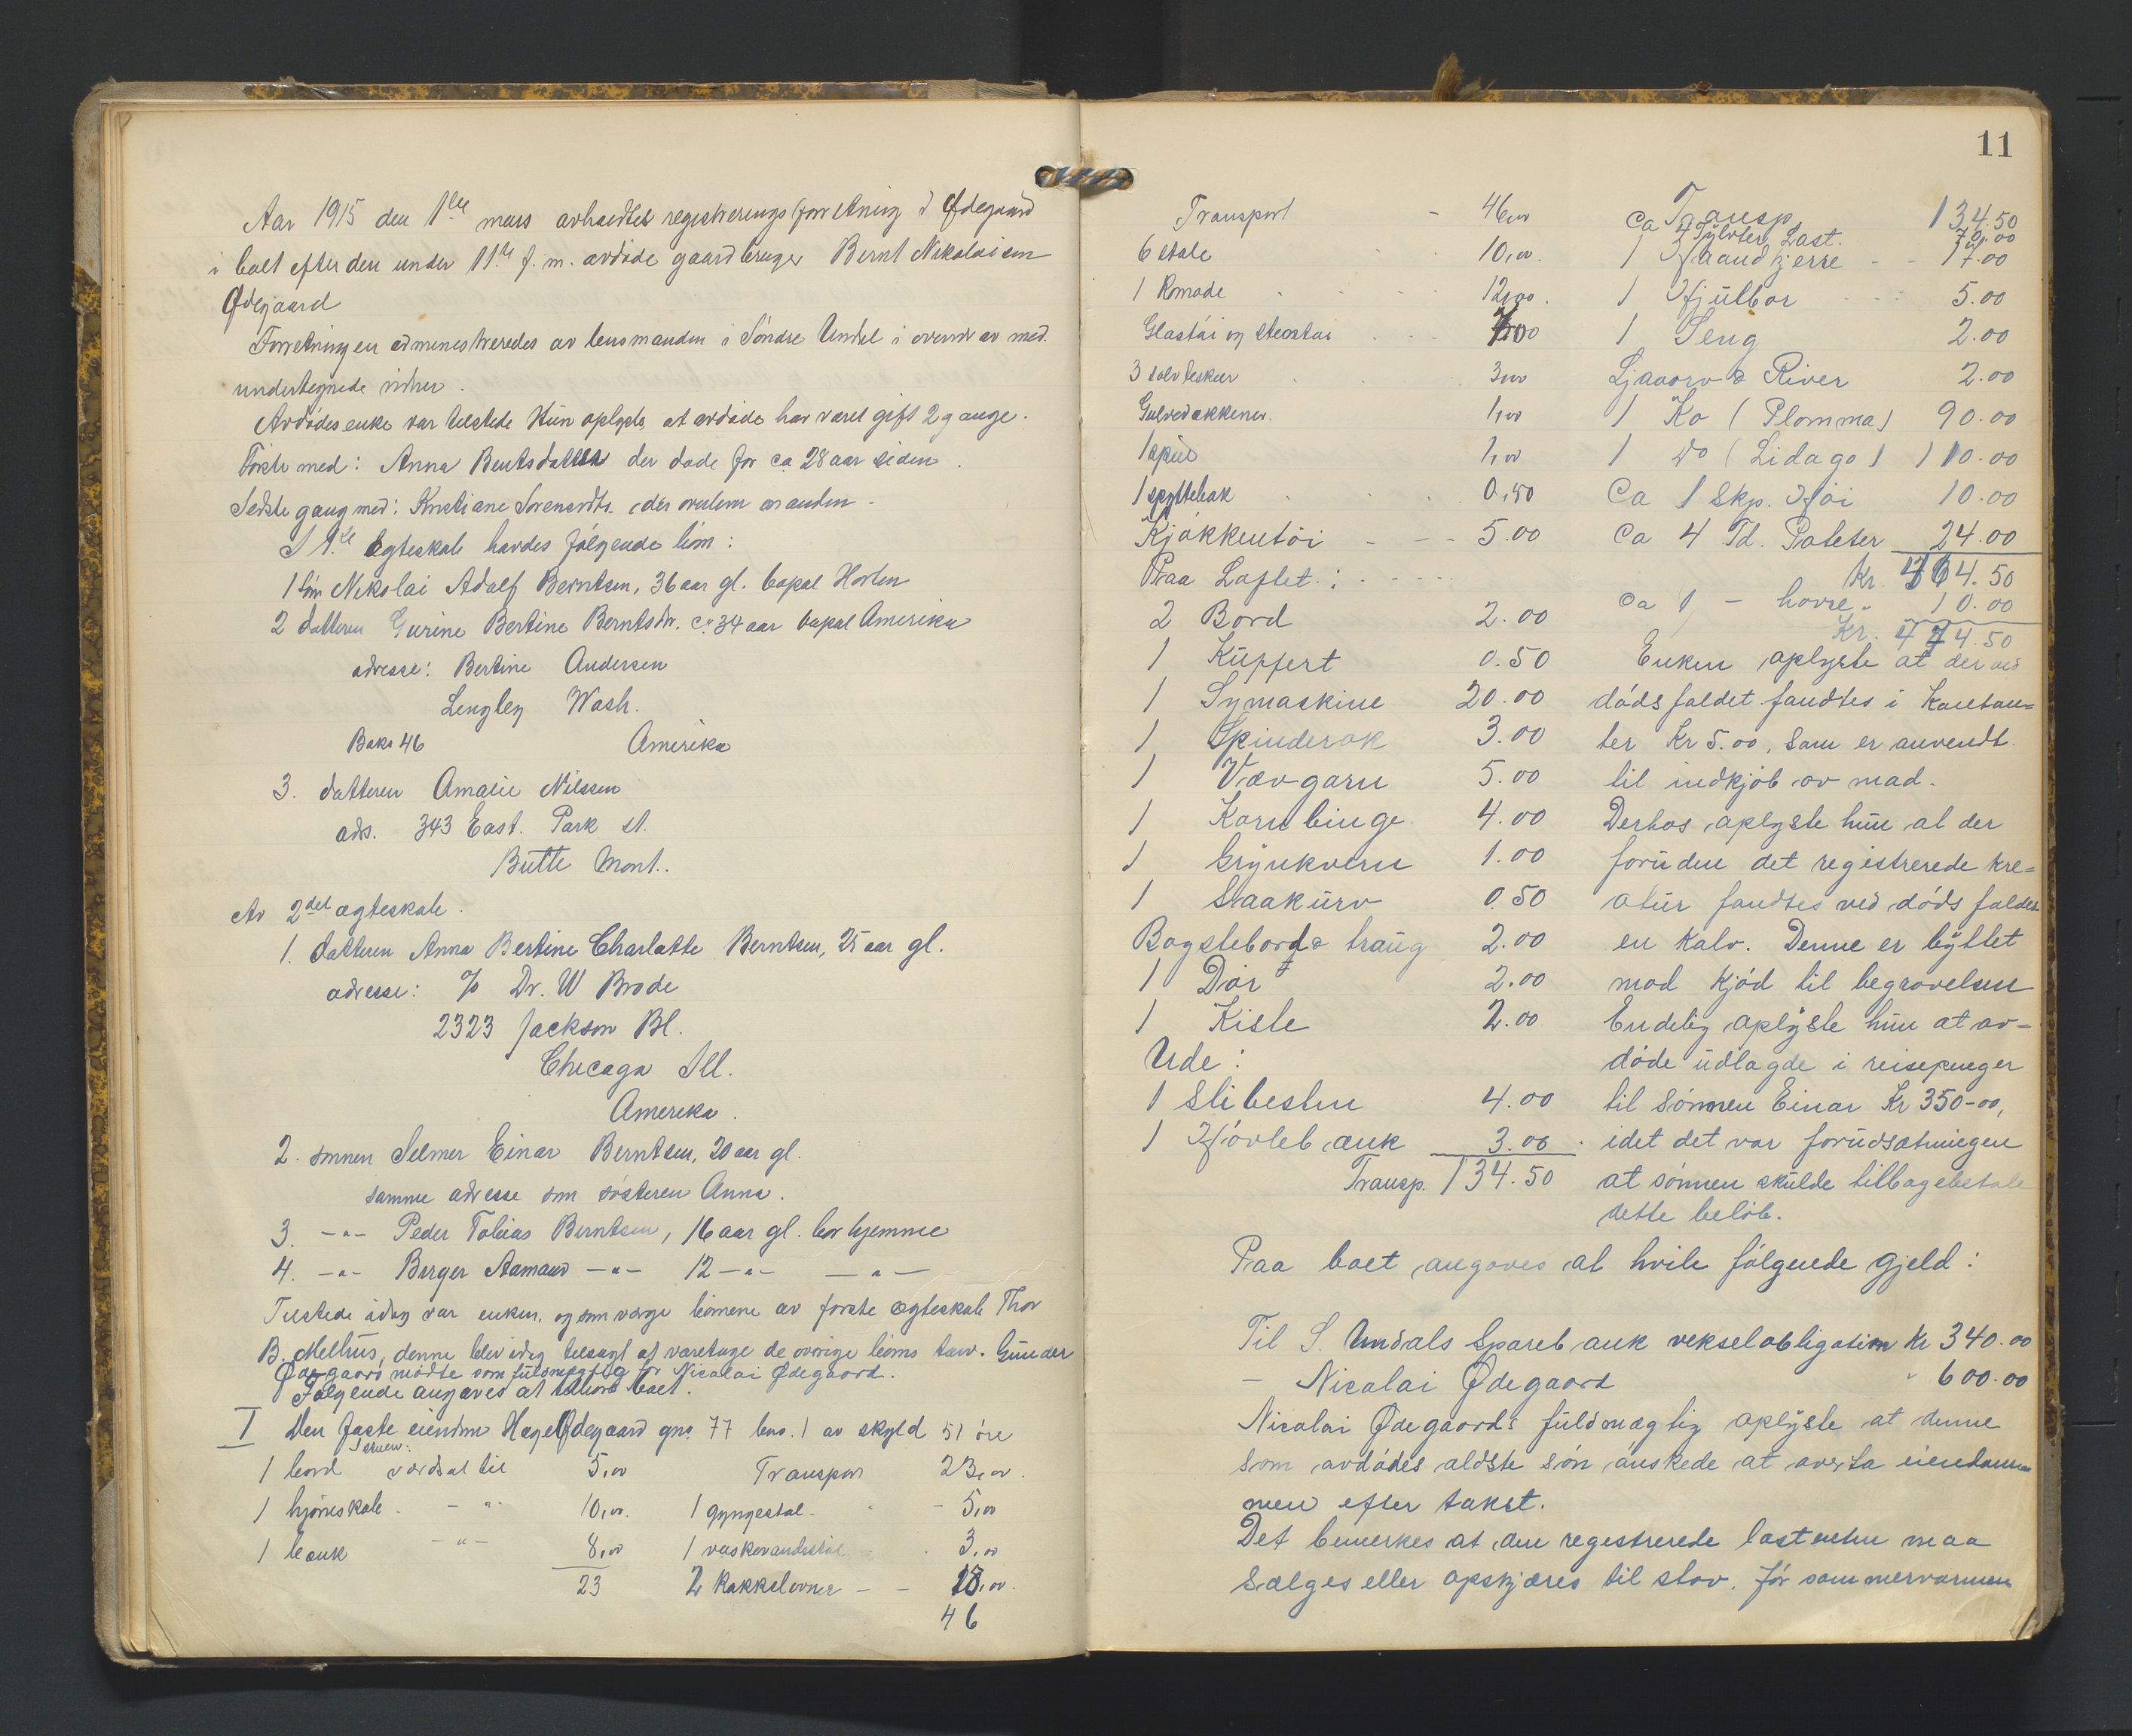 Aar 1915 den 1ste mars avholdtes registreringsforretning i Ødegaard
i boet efter den under 11te f. m. avdøde gaardbruger Bernt Nikolaisen
Ødegaard
Forretningen administreredes av lensmanden i Søndre Undal i overvær av med.
undertegnede vidner.
Avdødes enke var tilstede Hun oplyste, at avdøde har været gift 2 gange.
Først med: Anna Berntsdatter der døde for ca 28 aar siden.
Sidste gang med: Kristiane Sørensdtr. der overlever manden.
I 1ste Egteskab havdes følgende børn:
1 Søn Nikolai Adolf Berntsen, 36 aar gl. bopæl Horten
2 datteren Gurine Bertine Berntsdtr. ca 34 aar bopæl Amerika
adresse: Bertine Andersen
Lengley Wash.
Boks 46 Amerika
3. datteren Amalie Nilssen
ads. 343 East. Park st.
Butte Mont..
Av 2det ægteskab.
1. datteren Anna Bertine Charlotte Berntsen, 25 aar gl.
adresse: % Dr. W Brode
2323 Jackson Bl.
Chicago Ill.
Amerika.
2. sønnen Selmer Einar Berntsen, 20 aar gl.
samme adresse som søsteren Anna.
3. -"- Peder Tobias Berntsen, 16 aar gl. bor hjemme
4. -"- Birger Aamand -"- 12 -"- -"-
Tilstede idag var enken, og som værge børnene av første ægteskab Thor
B. Melhus, denne blev idag tilsagt at varetage de øvrige børns tarv. Gunder
Ødegaard mødte som fuldmægtig for Nicolai Ødegaard.
Følgende angaves at tilhøre boet.
I Den faste eiendom Ødegaard gno 77 bno. 1 av skyld 51 øre
I stuen:
1 bord værdsat til 5,00 Transport 23,00.
1 hjørneskab. -"- 10,00. 1 gyngestol. - 5,00
1 bænk -"- 8,00 1 vaskevandsstol - 3,00
23 2 kakkelovner - - 15,00.
46
11
Transport - 46,00
6 stole 10,00.
1 Komode 12,00.
Glastøi og stentøi
3 sølvteskeer 3,00
Gulvedækkener. 1,00
1 speil 1,00
1 spyttebak 0,50
Kjøkkentøi - - - 5.00
Paa Loftet:
2 Bord 2.00
1 Kuffert 0.50
1 Symaskine 20.00
1 Spinderok 3.00
1 Vævgarn 5.00
1 Kornbinge 4.00
1 Grynkvern 1.00
1 Saakurv 0.50
Bagstebord & traug 2.00
1 Dør 2.00
1 Kiste 2.00
Ude:
1 Slibesten 4.00
1 Høvlebænk 3.00
Transp. 134.50
Transp. 134.50
Ca 4 Tylvter Last. 70.00
1 Haandkjerre - - 17.00
1 Hjulbør 5.00
1 Seng 2.00
Ljaaorv & River 2.00
1 Ko (Plomma) 90.00
1 do (Lidago) 110.00
Ca 1 Skp. Høi 10.00
Ca 4 Td. Poteter 24.00
Kr. 464.50
ca 1 - havre. 10.00
Kr. 474.50
Enken oplyste at der ved
dødsfaldet fandtes i Kontan=
ter Kr 5.00, som er anvendt
til indkjøb av mad.
Derhos oplyste hun at der
foruden det registrerede kre=
atur fandtes ved dødsfaldet
en kalv. Denne er byttet
mod kjød til begravelsen
Endelig oplyste hun at av-
døde udlagde i reisepenger
til sønnen Einar Kr 350-00,
idet det var forudsætningen
at sønnen skulde tilbagebetale
dette beløb.
Paa boet angaves at hvile følgende gjeld:
Til S. Undals Sparebank vekselobligation Kr 340.00
- Nicolai Ødegaard " 600.00
Nicolai Ødegaards fuldmægtig oplyste at denne
som avdødes ældste søn ønskede at overta eiendom=
men efter takst.
Det bemerkes at den registrerede last enten maa
sælges eller opskjæres til stav, før sommervarmen